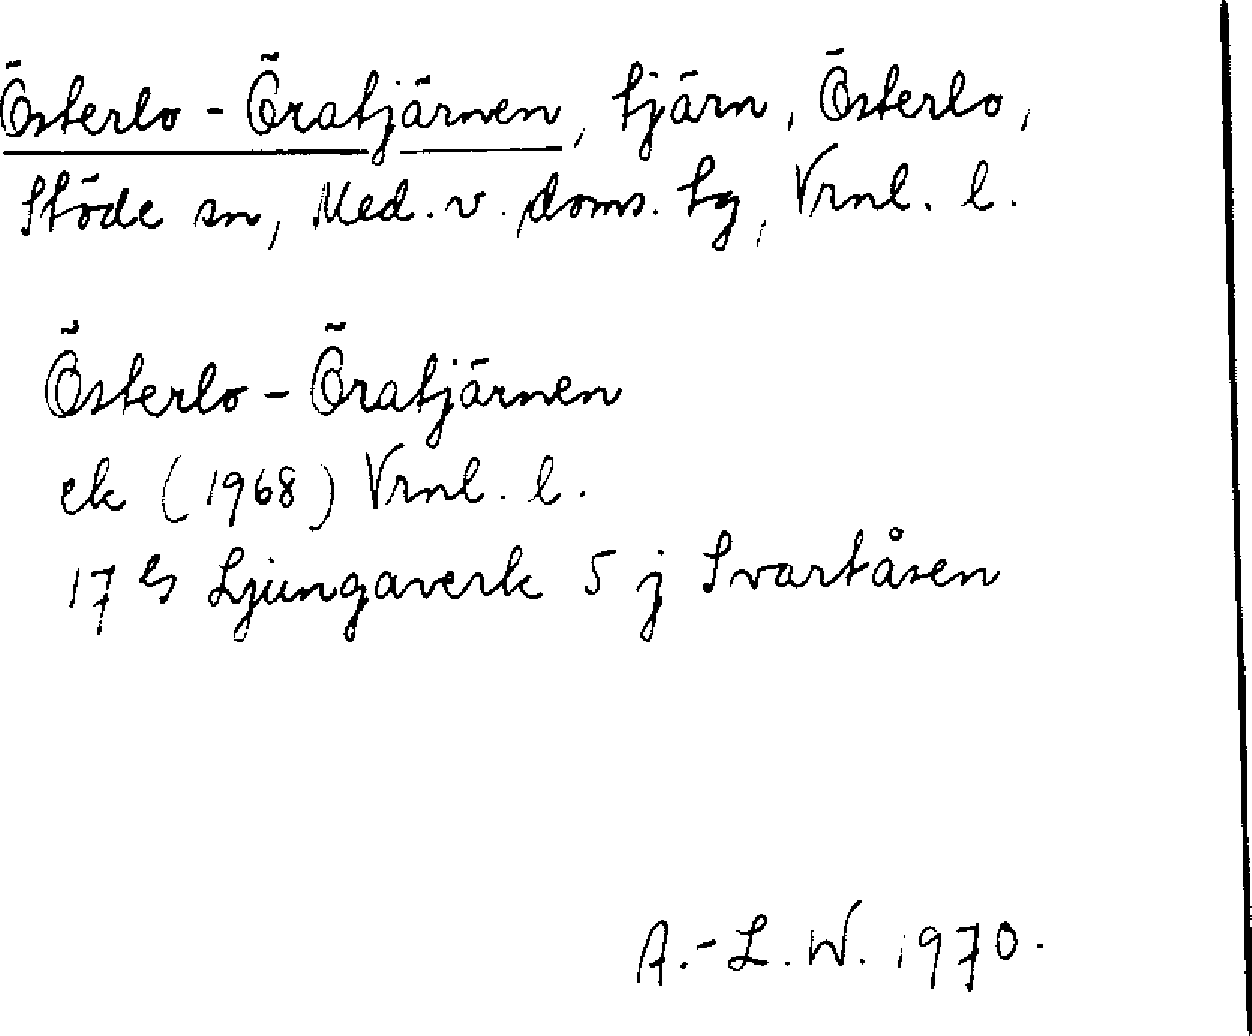 Österlo-Öratjärnen, tjärn, Österlo,
Stöde sn, Med. v. doms. tg, Vrnl. l.
Österlo-Öratjärnen
ek (1968) Vrnl. l.
17 Ljungaverk 5 j Svartåsen
A.-L. W. 1970.